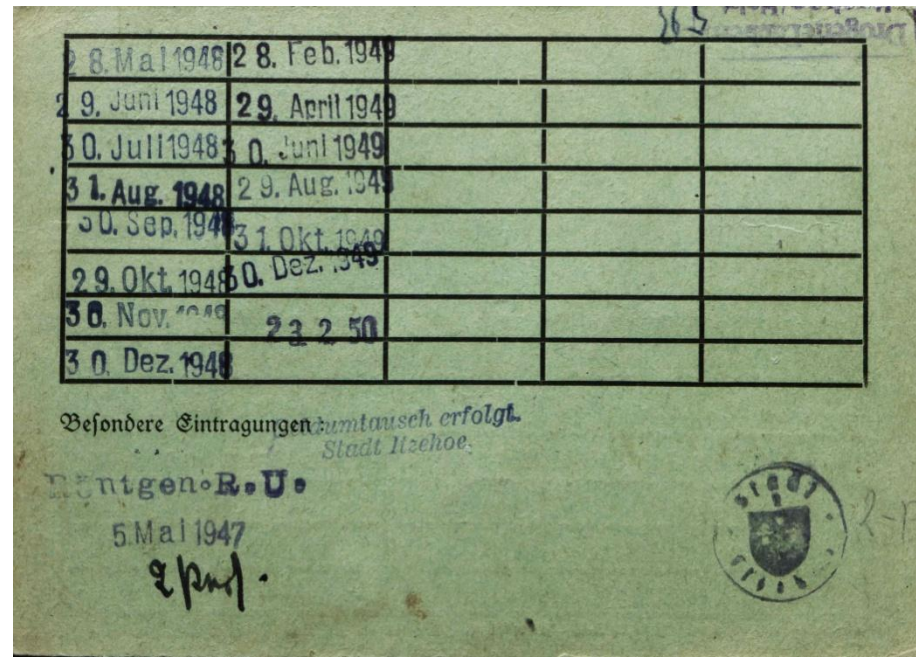 28. Mai 1948 28. Feb. 1949
29. Juni 1948 29. April 1949
30. Juli 1948 30. Juni 1949
31. Aug. 1948 29. Aug. 1949
30. Sep. 1948 31. Okt. 1949
29. Okt. 1948 30. Dez. 1949
30. Nov. 23. 2. 50
30. Dez. 1948
Besondere Eintragungen: Geldumtausch erfolgt.
Stadt Itzehoe.
Röntgen.R.U.
5. Mai 1947
Stadt